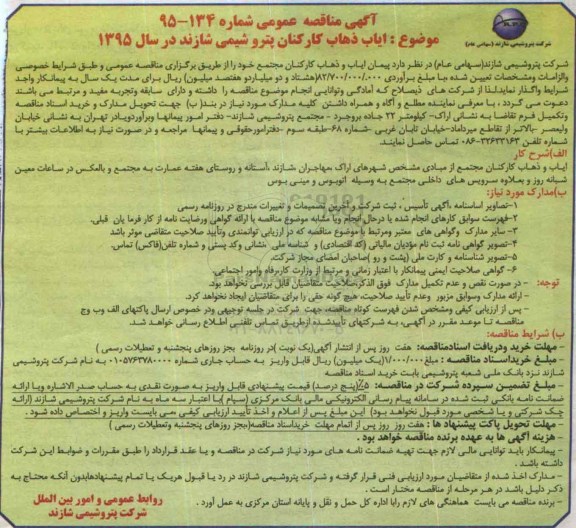 آگهی مناقصه عمومی شماره ۱۳۴-۹۵
موضوع : ایاب ذهاب کارکنان پتروشیمی شازند در سال ۱۳۹۵
شرکت پتروشیمی شازند (سهامی عام)
شرکت پتروشیمی شازند(سهامی عام) در نظر دارد پیمان ایاب و ذهاب کارکنان مجتمع خود را از طریق برگزاری مناقصه عمومی و طبق شرایط خصوصی
والزامات ومشخصات تعیین شده ،با مبلغ برآوردی ۸۲/۷۰۰/۰۰۰/۰۰۰(هشتاد و دو میلیاردو هفتصد میلیون) ریال برای مدت یک سال به پیمانکار واجد
شرایط واگذار نماید.لذا از شرکت های ذیصلاح که آمادگی وتوانایی انجام موضوع مناقصه را داشته و دارای سابقه وتجربه مفید و مرتبط می باشند
دعوت می گردد ، با معرفی نماینده مطلع و آگاه و همراه داشتن کلیه مدارک مورد نیاز در بند( ب) جهت تحویل مدارک و خرید اسناد مناقصه
وتکمیل فرم تقاضا به نشانی اراک- کیلومتر ۲۲ جاده بروجرد - مجتمع پتروشیمی شازند- دفتر امور پیمانها وبرآوردویادر تهران به نشانی خیابان
ولیعصر -بالاتر از تقاطع میرداماد-خیابان تابان غربی -شماره ۶۸-طبقه سوم -دفترامورحقوقی و پیمانها مراجعه و در صورت نیاز به اطلاعات بیشتر با
شماره تلفن ۳۲۶۳۳۱۶۲-۰۸۶ تماس حاصل نمایند.
الف)شرح کار
ایاب و ذهاب کارکنان مجتمع از مبادی مشخص شهرهای اراک ،مهاجران ،شازند ،آستانه و روستای هفته عمارت به مجتمع و بالعکس در ساعات معین
شبانه روز و بعلاوه سرویس های داخلی مجتمع به وسیله اتوبوس و مینی بوس
ب)مدارک مورد نیاز:
۱-تصاویر اساسنامه ،آگهی تأسیس ، ثبت شرکت و آخرین تصمیمات و تغییرات مندرج در روزنامه رسمی
۲-فهرست سوابق کارهای انجام شده یا درحال انجام ویا مشابه موضوع مناقصه با ارائه گواهی ورضایت نامه از کار فرما یان قبلی.
۳-سایر مدارک وگواهی های معتبر ومرتبط با موضوع مناقصه که در ارزیابی توانمندی وتأیید صلاحیت متقاضی موثر باشد
۴-تصویر گواهی نامه ثبت نام مؤدیان مالیاتی (کد اقتصادی) و شناسه ملی ،نشانی وکد پستی و شماره تلفن(فاکس) تماس.
۵-تصویر شناسنامه و کارت ملی (پشت و رو )صاحبان امضای مجاز شرکت.
۶- گواهی صلاحیت ایمنی پیمانکار با اعتبار زمانی و مرتبط از وزارت کاررفاه وامور اجتماعی.
توجه: - در صورت نقص و عدم تکمیل مدارک فوق الذکر،صلاحیت متقاضیان قابل بررسی نخواهد بود.
- ارائه مدارک وسوابق مزبور وعدم تأیید صلاحیت، هیچ گونه حقی را برای متقاضیان ایجاد نخواهد کرد.
- پس از ارزیابی کیفی ومشخص شدن فهرست کوتاه مناقصه، جهت شرکت در جلسه توجیهی ودر خصوص ارسال پاکتهای الف وب وج
مناقصه تا موعد مقرر در آگهی، به شرکتهای تأییدشده ازطریق تماس تلفنی اطلاع رسانی خواهد شد.
ب) شرایط مناقصه:
- مهلت خرید ودریافت اسنادمناقصه: هفت روز پس از انتشار آگهی(یک نوبت )در روزنامه بجز روزهای پنجشنبه و تعطیلات رسمی )
- مبلغ خریداسناد مناقصه : مبلغ ۱/۰۰۰/۰۰۰(یک میلیون) ریال قابل واریز به حساب جاری شماره ۰۱۰۵۷۶۳۷۸۰۰۰ به نام شرکت پتروشیمی
شازند نزد بانک ملی شعبه پتروشیمی بابت خرید اسناد مناقصه
- مبلغ تضمین سپرده شرکت در مناقصه: ۵٪(پنج درصد) قیمت پیشنهادی قابل واریز به صورت نقدی به حساب صدر الاشاره ویا ارائه
ضمانت نامه بانکی ثبت شده در سامانه پیام رسانی الکترونیکی مالی بانک مرکزی (سپام )با اعتبار سه ماه به نام شرکت پتروشیمی شازند (ارائه
چک شرکتی و یا شخصی مورد قبول نخواهد بود) این مبلغ پس از اعلام و اخذ تأیید ارزیابی کیفی ،می بایست واریز و اختصاص داده شود .
- مهلت تحویل پاکت پیشنهاد ها : هفت روز روز پس از اتمام مهلت خریداسناد مناقصه(بجز روزهای پنجشنبه وتعطیلات رسمی )
- هزینه آگهی ها به عهده برنده مناقصه خواهد بود .
- پیمانکار باید توانایی مالی لازم جهت تهیه ضمانت نامه های مورد نیاز شرکت در مناقصه و یا عقد قرارداد را طبق مقررات و ضوابط این شرکت
داشته باشد .
- مدارک اخذ شده از متقاضیان مورد ارزیابی فنی قرار گرفته و شرکت پتروشیمی شازند در رد یا قبول هریک یا تمام پیشنهادهابدون آنکه محتاج به
ذکر دلیل باشد در هر مرحله از مناقصه مختار است .
- برنده مناقصه می بایست هماهنگی های لازم رابا اداره کل حمل و نقل و پایانه استان مرکزی به عمل آورد .
روابط عمومی و امور بین الملل
شرکت پتروشیمی شازند